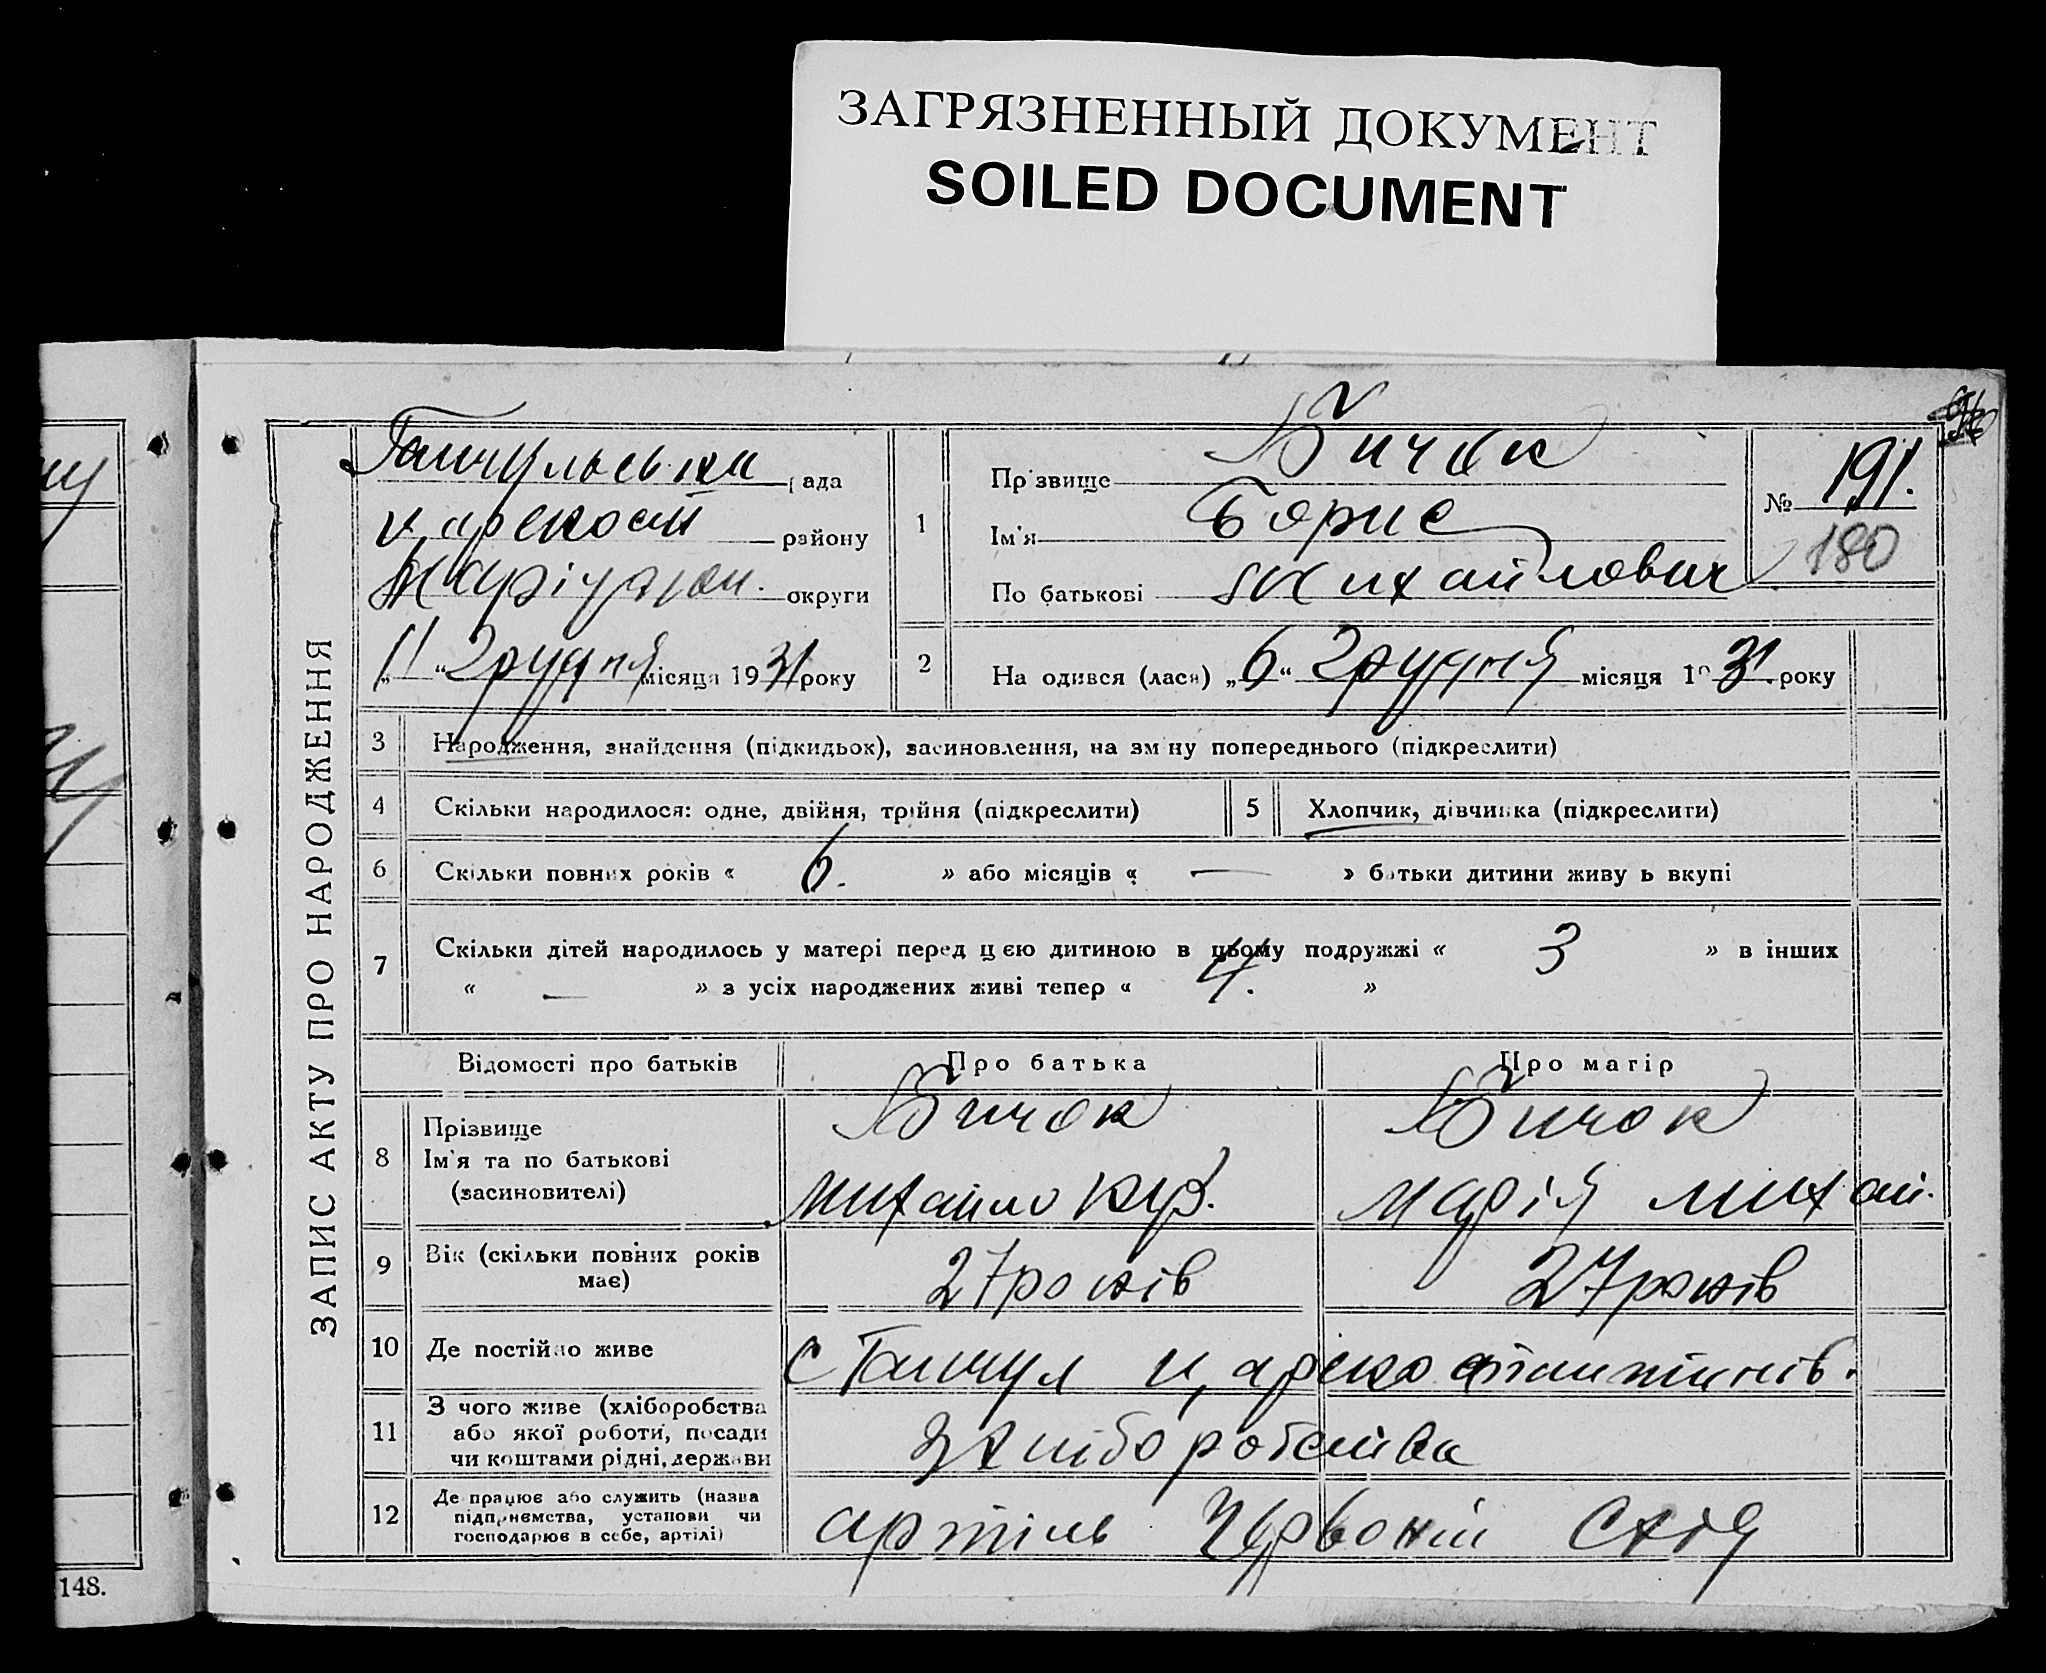 ЗАГРЯЗНЕННЫЙ ДОКУМЕНТ
SOILED DOCUMENT
ЗАПИС АКТУ ПРО НАРОДЖЕННЯ
рада
району
округи
„11“ Грудня місяця 1931 року
1
Прізвище Бичок
Ім'я Борис
По батькові Михайлович
№ 191.
180
2
На одився (лася) „6“ Грудня місяця 1931 року
3 Народження, знайдення (підкидьок), засиновлення, на зміну попереднього (підкреслити)
4 Скільки народилося: одне, двійня, трійня (підкреслити)
5 Хлопчик, дівчинка (підкреслити)
6 Скільки повних років « 6. » або місяців « — » батьки дитини живу ь вкупі
7 Скільки дітей народилось у матері перед цією дитиною в цьому подружжі « 3 » в інших
« — » з усіх народжених живі тепер « 4. »
Відомості про батьків
Про батька
Про матір
8 Прізвище
Ім'я та по батькові
(засиновителі)
Бичок
Михайло
Бичок
Марія Михай.
9 Вік (скільки повних років
має)
27 років
27 років
10 Де постійно живе
11 З чого живе (хліборобства
або якої роботи, посади
чи коштами рідні, держави
з хліборобства
12 Де працює або служить (назва
підприємства, установи чи
господарює в себе, артілі)
артіль Червоний Схід
148.